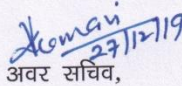 Kumari
27/12/19
अवर सचिव,